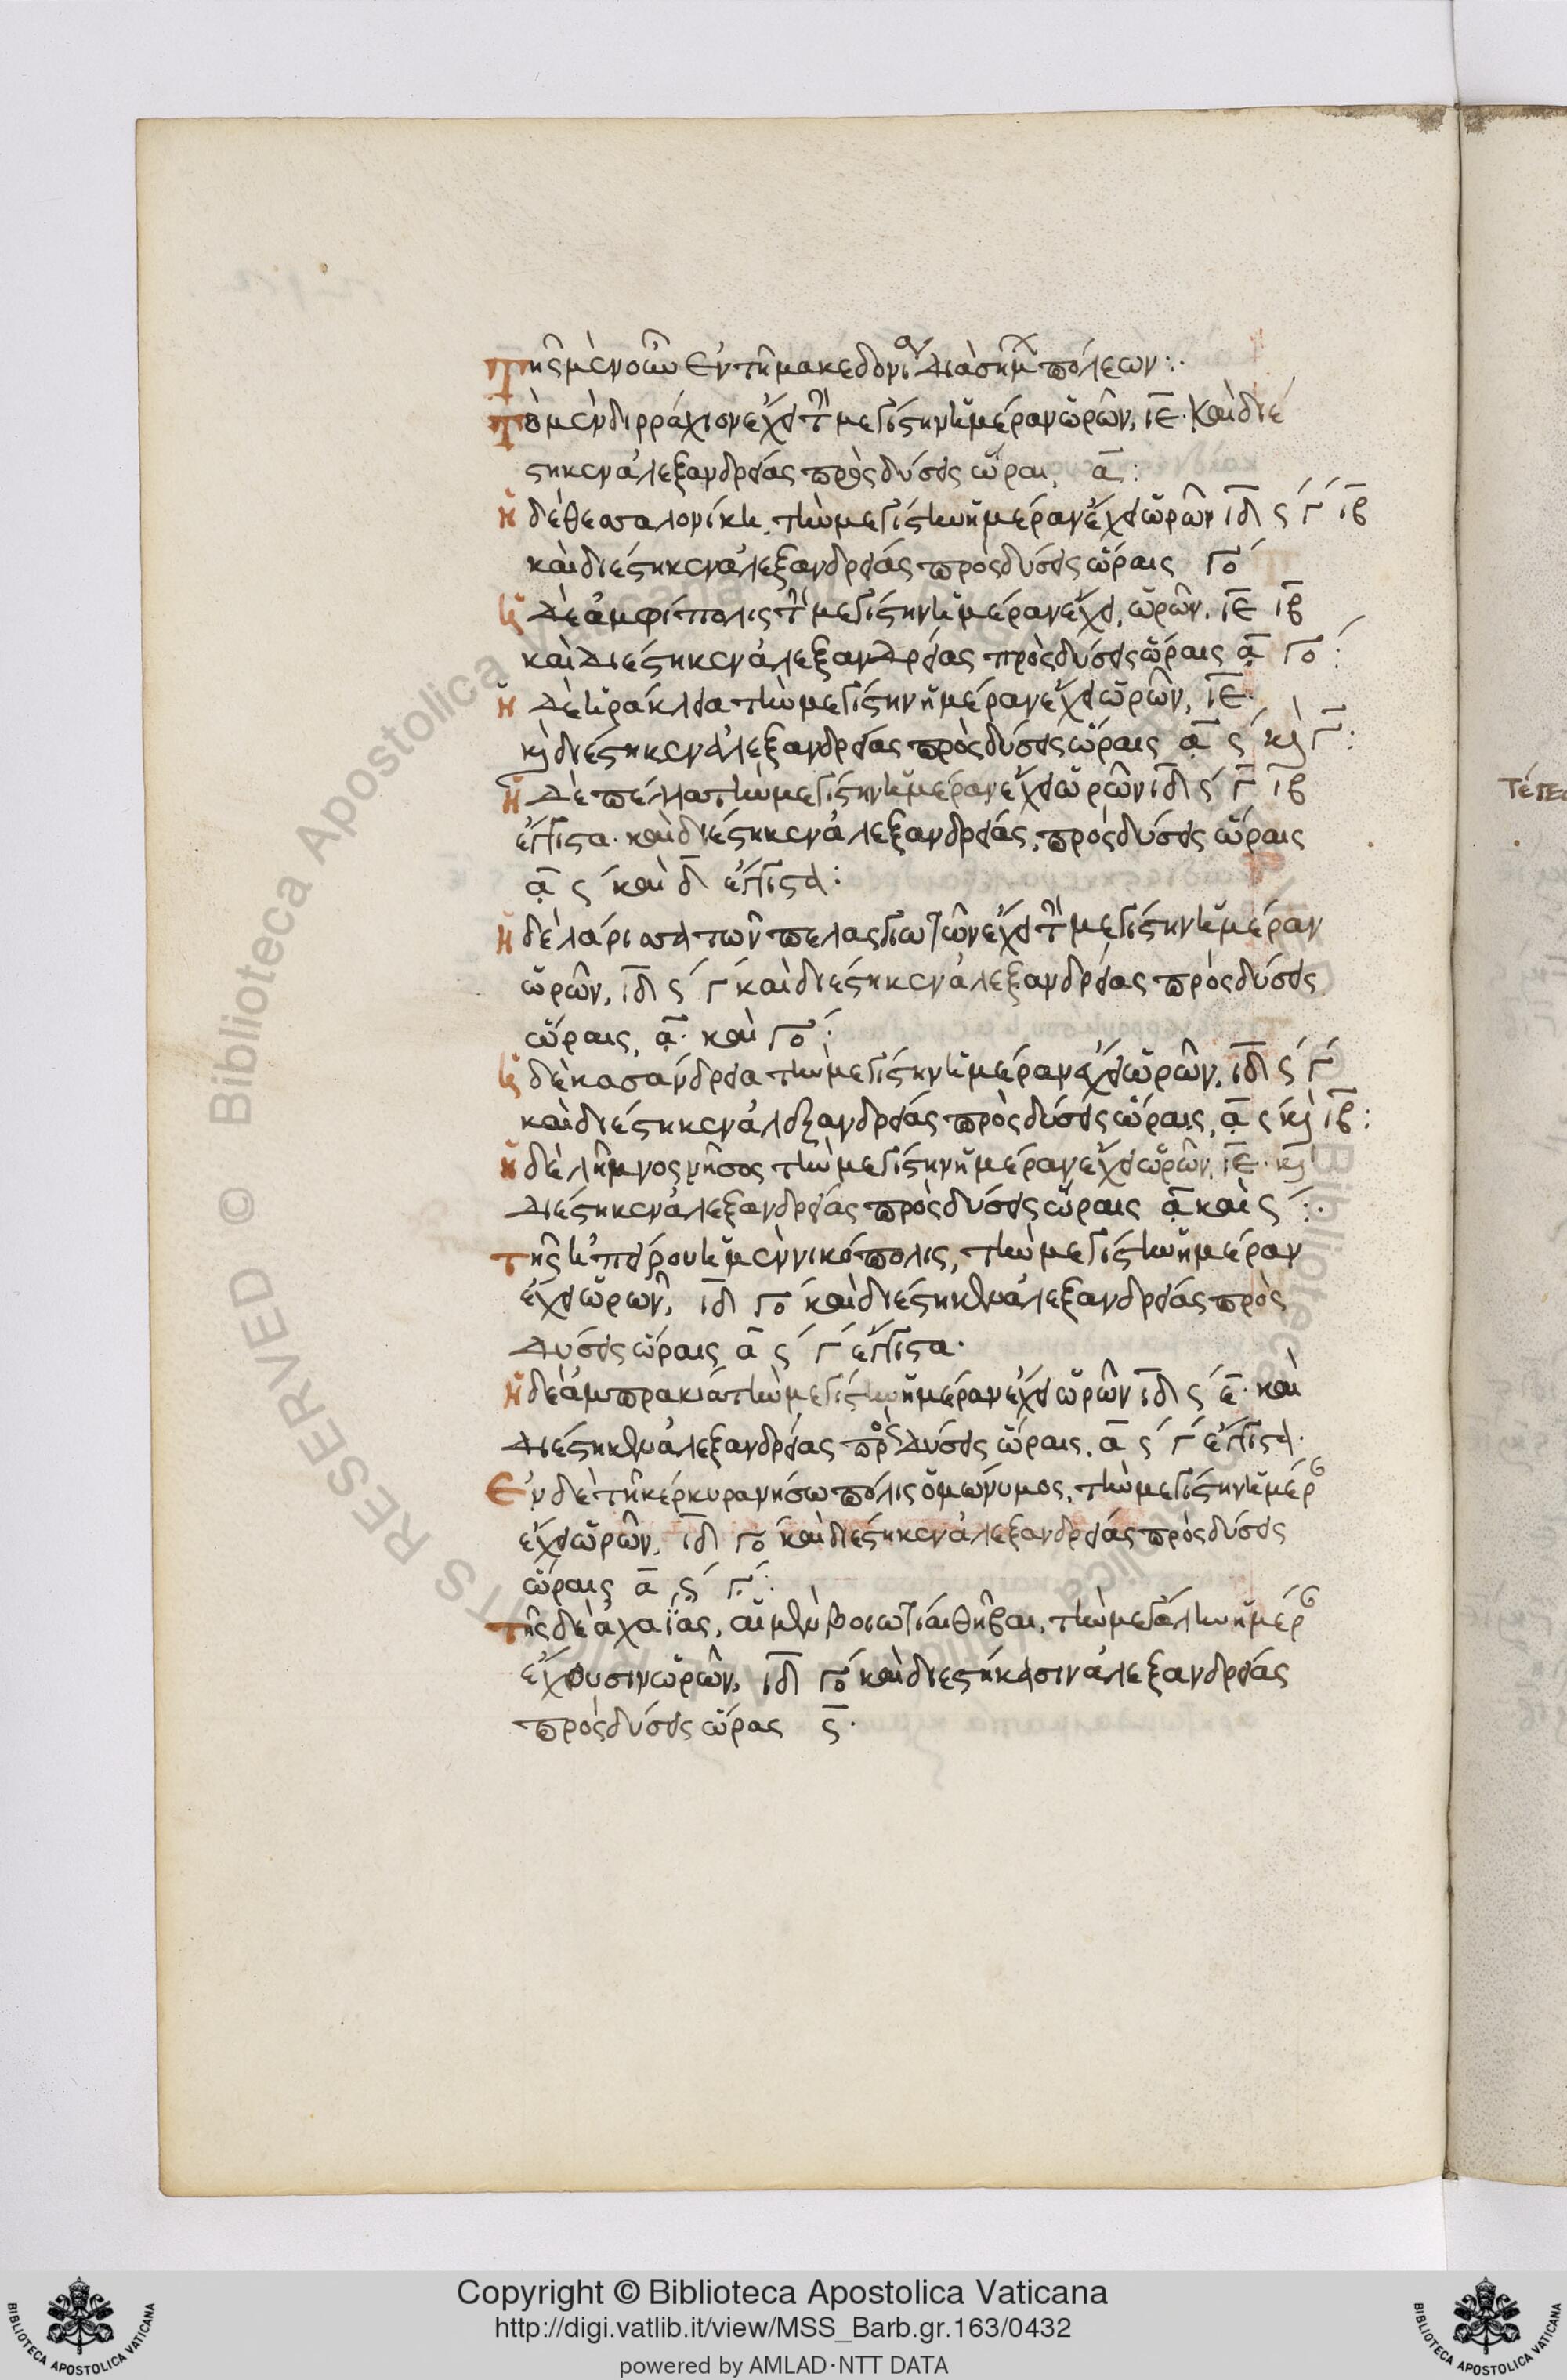 τῆς μὲν οὖν ἐν τῇ μακεδονίᾳ διασήμων πόλεων:·
τὸ μὲν διρράχιον ἔχει τὴν μεγίστην ἡμέραν ὡρῶν, ιε· καὶ διέ
στηκεν ἀλεξανδρείας πρὸς δύσεις ὥραι, α:
ἡ δὲ θεσσαλονίκη, τὴν μεγίστην ἡμέραν ἔχει ὡρῶν ιδ ϛ´ γ´ ιβ
καὶ διέστηκεν ἀλεξανδρείας πρὸς δύσεις ὥραις γο´
ἡ δὲ ἀμφίπολις τὴν μεγίστην ἡμέραν ἔχει, ὡρῶν, ιε ιβ
καὶ διέστηκεν ἀλεξανδρείας πρὸς δύσεις ὥραις α γο´:
ἡ δὲ ἡράκλεια τὴν μεγίστην ἡμέραν ἔχει ὡρῶν, ιε·
κὶ διέστηκεν ἀλεξανδρείας πρὸς δύσεις ὥραις α ϛ´ κὶ γ:
ἡ δὲ πέλλα τὴν μεγίστην ἡμέραν ἔχει ὡρῶν ιδ ϛ´ γ ιβ
ἔγγιστα· καὶ διέστηκεν ἀλεξανδρείας, πρὸς δύσεις ὥραις
α ϛ´ καὶ δ ἔγγιστα:
ἡ δὲ λάρισσα τῶν πελασγιωτῶν ἔχει τὴν μεγίστην ἡμέραν
ὡρῶν, ιδ ϛ´ γ´ καὶ διέστηκεν ἀλεξανδρείας πρὸς δύσεις
ὥραις, α· καὶ γο´:
ἡ δὲ κασάνδρεια τὴν μεγίστην ἡμέραν ἔχει ὡρῶν, ιδ ϛ´ γ´
καὶ διέστηκεν ἀλεξανδρείας πρὸς δύσεις ὥραις, α ϛ´ κὶ ιβ:
ἡ δὲ λῆμνος νῆσος τὴν μεγίστην ἡμέραν ἔχει ὡρῶν, ιε· κὶ
διέστηκεν ἀλεξανδρείας πρὸς δύσεις ὥραις α καὶ ϛ´:·
τῆς ἠπείρου ἡ μὲν νικόπολις, τὴν μεγίστην ἡμέραν
ἔχει ὡρῶν, ιδ γο´ καὶ διέστηκεν ἀλεξανδρείας πρὸς
δύσεις ὥραις α ϛ´ γ´ ἔγγιστα·
ἡ δὲ ἀμπρακία τὴν μεγίστην ἡμέραν ἔχει ὡρῶν ιδ ϛ´ ε· καὶ
διέστηκεν ἀλεξανδρείας πρὸς δύσεις ὥραις, α ϛ´ γ´ ἔγγιστα·
Ἐν δὲ τῇ κερκύρα νήσω πόλις ὁμώνυμος, τὴν μεγίστην ἡμέρ
ἔχει ὡρῶν, ιδ γο´ καὶ διέστηκεν ἀλεξανδρείας πρὸς δύσεις
ὥραις α ϛ´ γ´:
τῆς δὲ ἀχαΐας, αἱ μὲν βοιωτίαι θῆβαι, τὴν μεγάλην ἡμέρ
ἔχουσιν ὡρῶν, ιδ γο´ καὶ διεστήκασιν ἀλεξανδρείας
πρὸς δύσεις ὥρας ϛ·
Copyright © Biblioteca Apostolica Vaticana
http://digi.vatlib.it/view/MSS_Barb.gr.163/0432
powered by AMLAD·NTT DATA